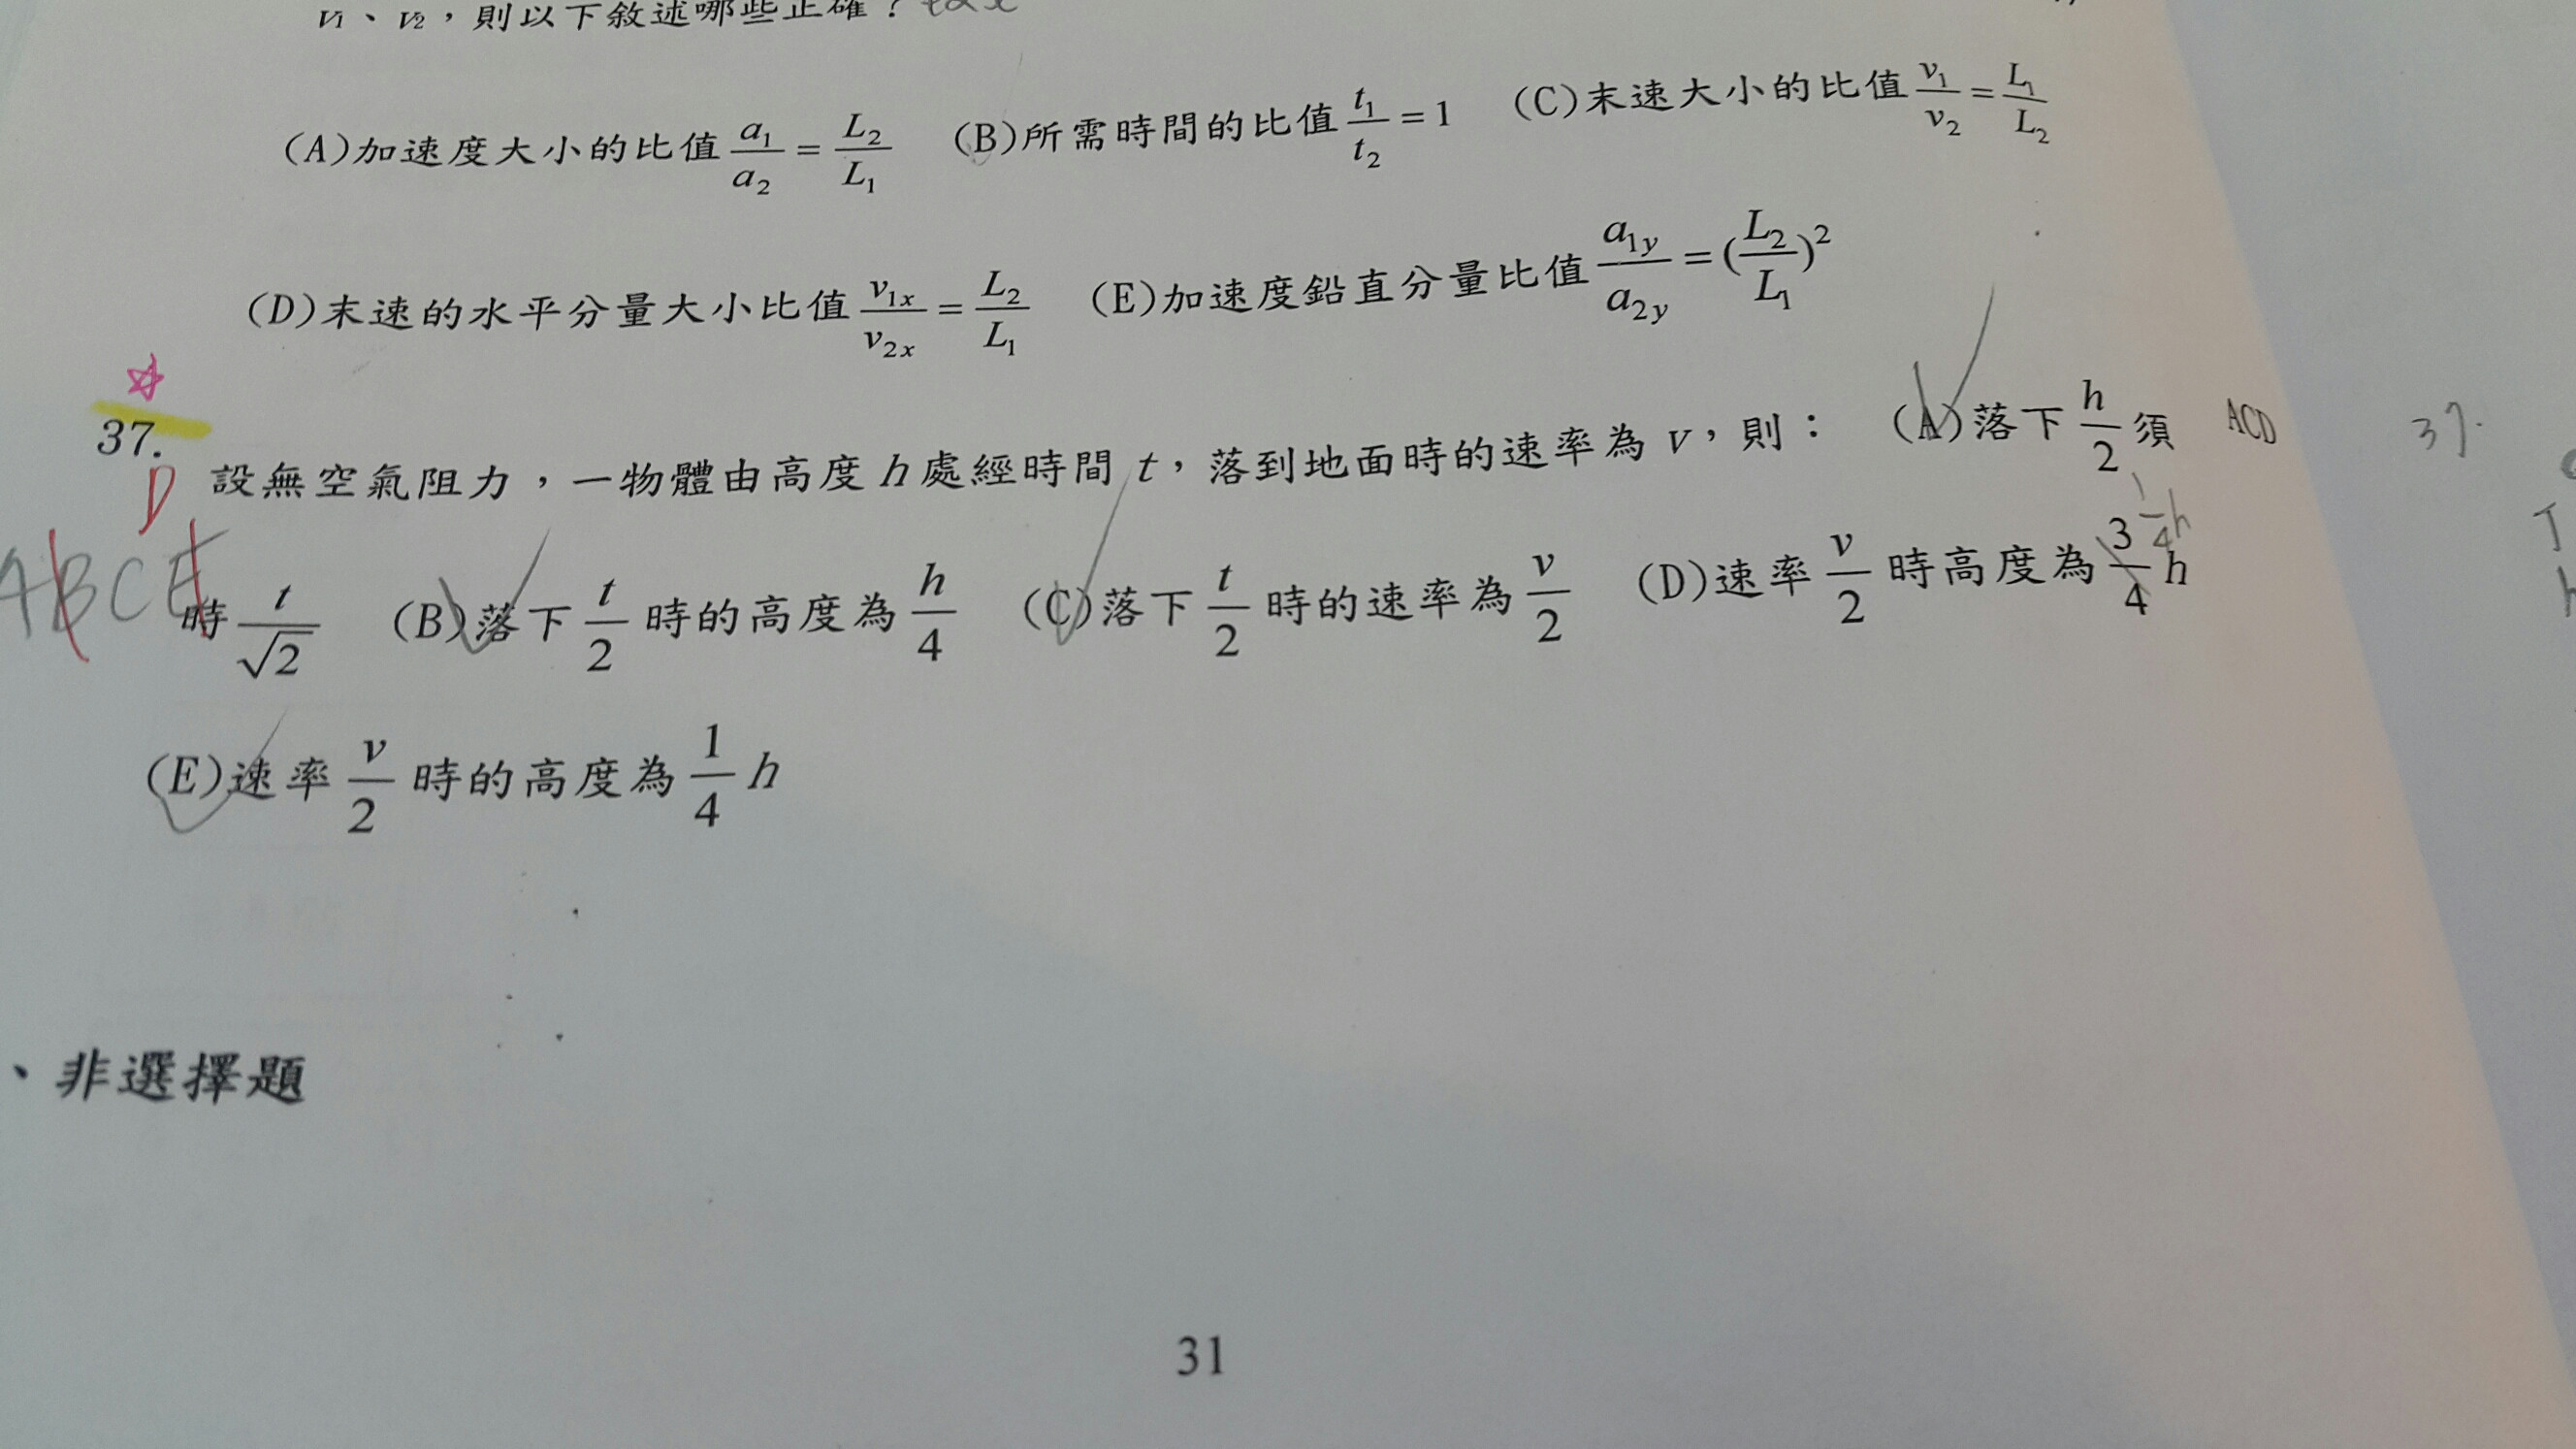 v₁、v₂，則以下敘述哪些正確？
(A)加速度大小的比值 a₁/a₂ = L₂/L₁ (B)所需時間的比值 t₁/t₂ = 1 (C)末速大小的比值 v₁/v₂ = L₁/L₂
(D)末速的水平分量大小比值 v₁ₓ/v₂ₓ = L₂/L₁ (E)加速度鉛直分量比值 a_{1y}/a_{2y} = (L₂/L₁)²
37. 設無空氣阻力，一物體由高度 h 處經時間 t，落到地面時的速率為 v，則： (A)落下 h/2 須 ACD 37.
D
ABCE
時 t/√2 (B)落下 t/2 時的高度為 h/4 (C)落下 t/2 時的速率為 v/2 (D)速率 v/2 時高度為 3/4 h
1/4 h
(E)速率 v/2 時的高度為 1/4 h
、非選擇題
31